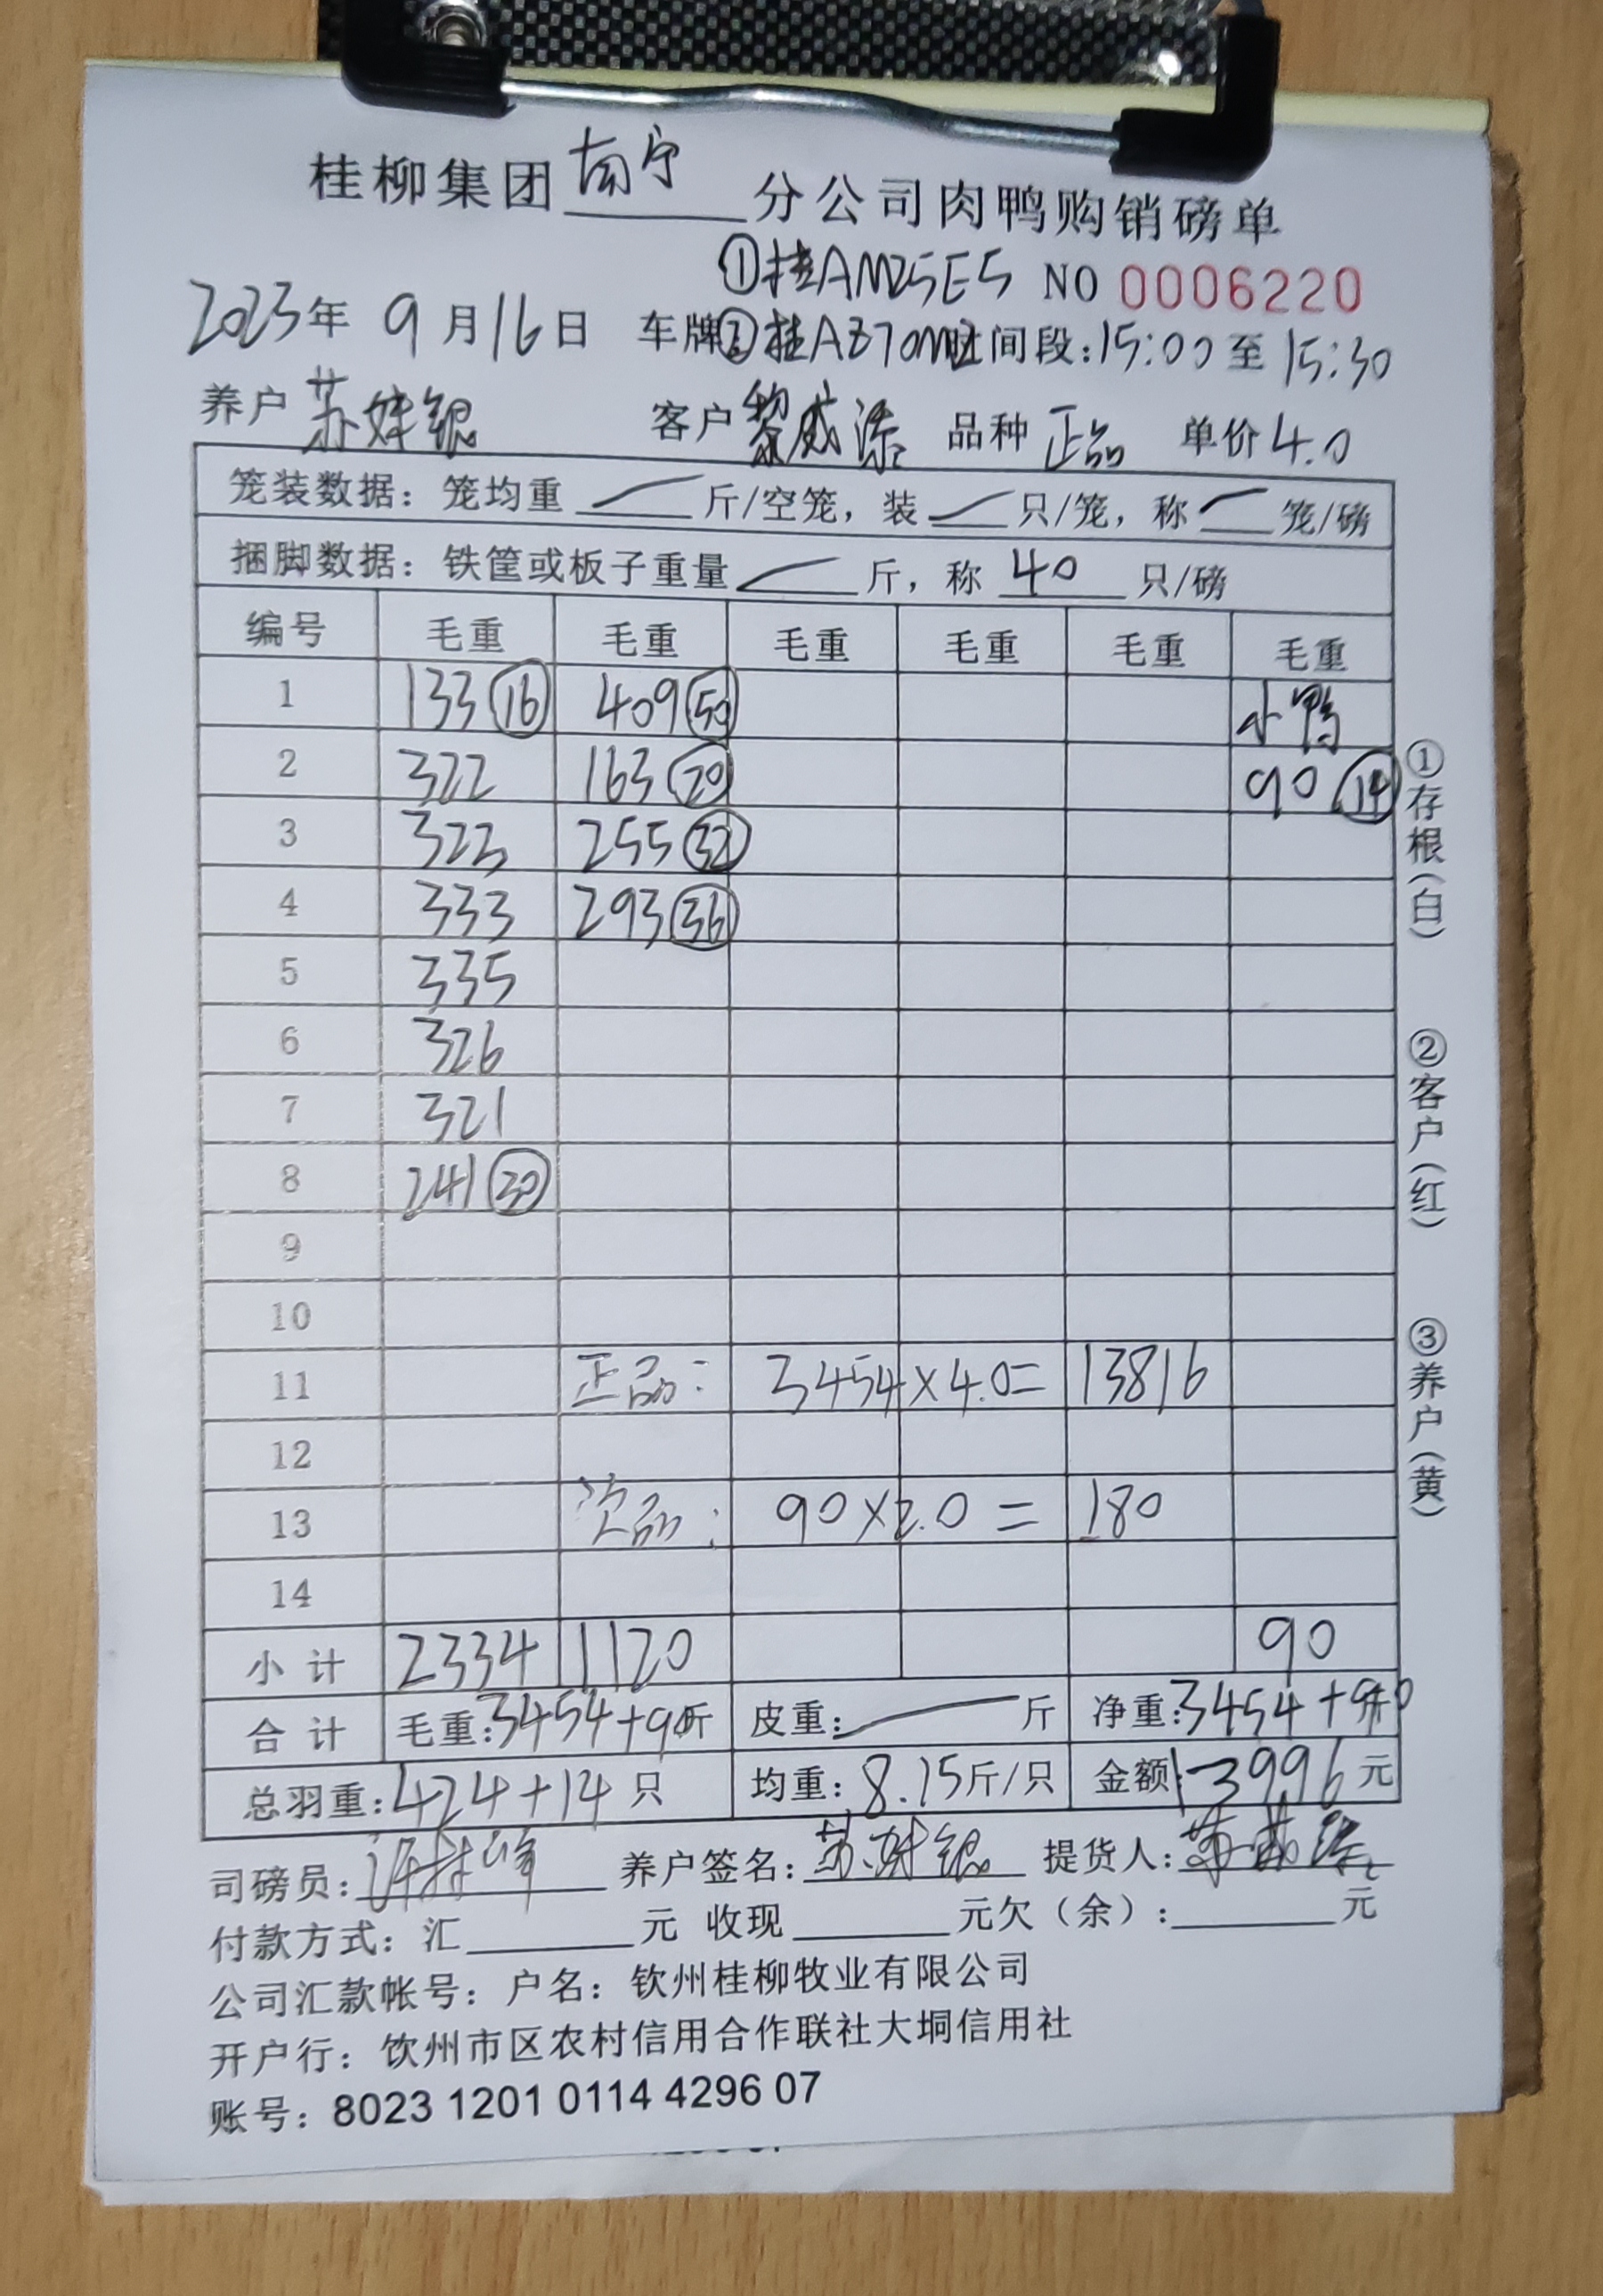 桂柳集团南宁分公司肉鸭购销磅单
①桂AM25E5 NO 0006220
2023年 9月16日 车牌②桂AZ70M2时间段:15:00至15:30
养户 苏妹银 客户 黎威添 品种 正品 单价 4.0
笼装数据：笼均重 斤/空笼，装 只/笼，称 笼/磅
捆脚数据：铁筐或板子重量 斤，称 40 只/磅
编号 毛重 毛重 毛重 毛重 毛重 毛重
1 133 16 409 50 小鸭
2 322 163 20 90 14
3 323 255 32
4 333 293 36
5 335
6 326
7 321
8 241 30
9
10
11 正品: 3454×4.0= 13816
12
13 次品: 90×2.0= 180
14
小计 2334 1120 90
合计 毛重:3454+90斤 皮重: 斤 净重:3454+90斤
总羽重:424+14只 均重:8.15斤/只 金额:13996元
司磅员: 养户签名:苏妹银 提货人:
付款方式：汇 元 收现 元欠（余）: 元
公司汇款帐号：户名：钦州桂柳牧业有限公司
开户行：饮州市区农村信用合作联社大垌信用社
账号：8023 1201 0114 4296 07
①存根（白）
②客户（红）
③养户（黄）